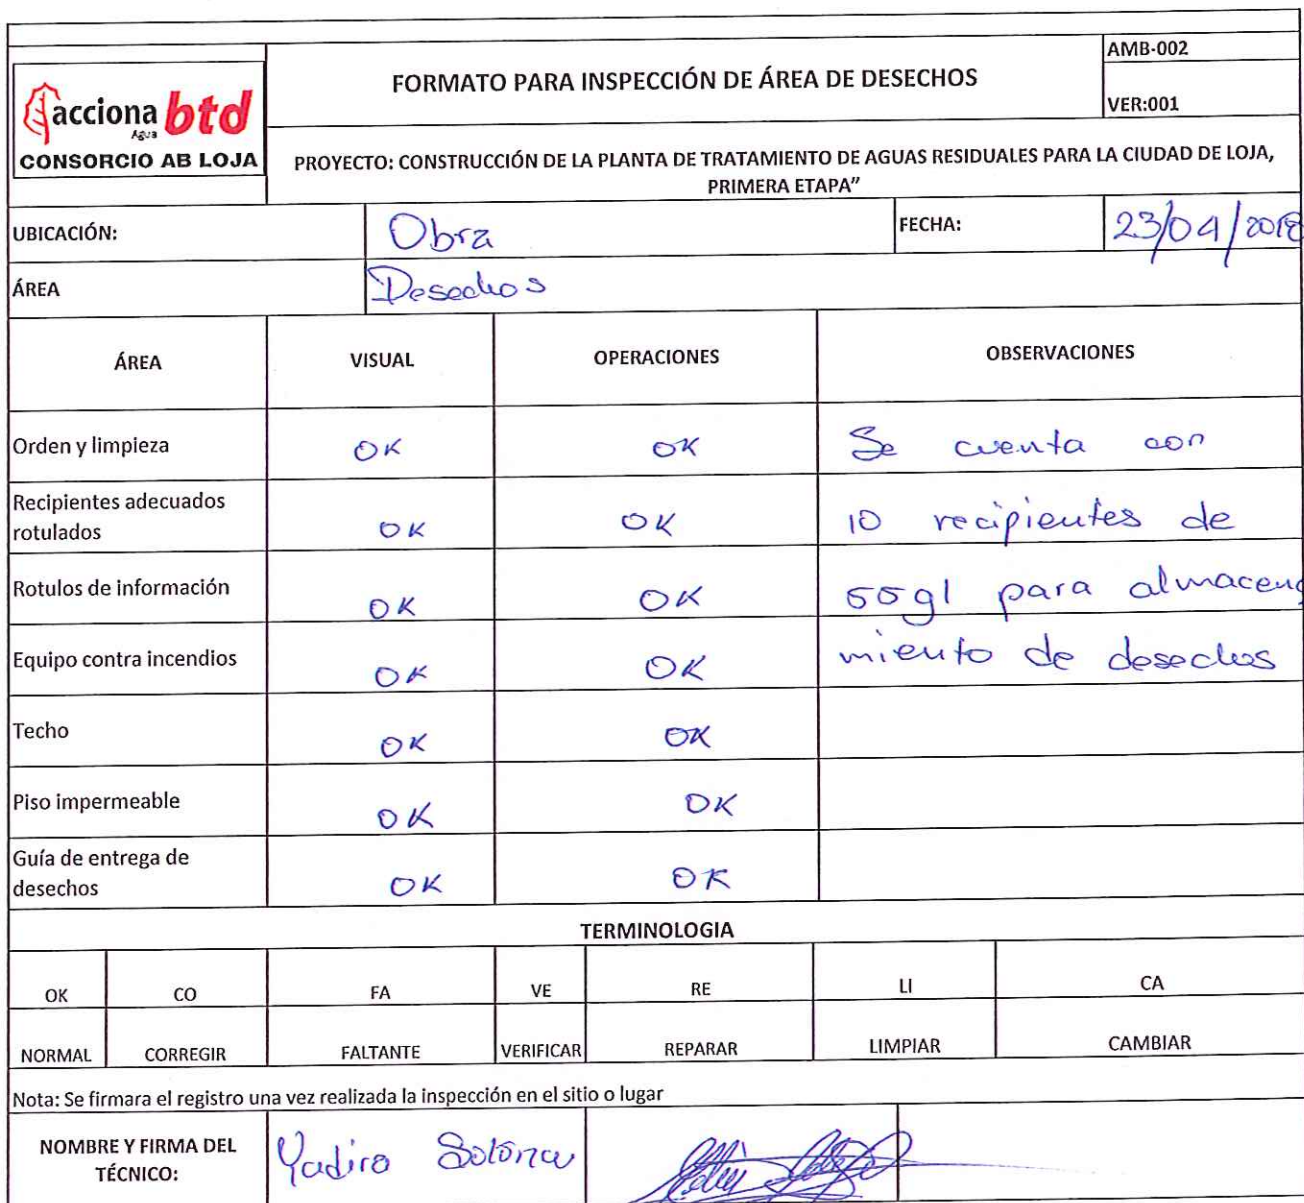 AMB-002
FORMATO PARA INSPECCIÓN DE ÁREA DE DESECHOS
VER:001
acciona btd
Agua
CONSORCIO AB LOJA
PROYECTO: CONSTRUCCIÓN DE LA PLANTA DE TRATAMIENTO DE AGUAS RESIDUALES PARA LA CIUDAD DE LOJA,
PRIMERA ETAPA”
UBICACIÓN: Obra FECHA: 23/04/2018
ÁREA Desechos
ÁREA VISUAL OPERACIONES OBSERVACIONES
Orden y limpieza OK OK Se cuenta con
Recipientes adecuados
rotulados OK OK 10 recipientes de
Rotulos de información OK OK 55gl para almacena
Equipo contra incendios OK OK miento de desechos
Techo OK OK
Piso impermeable OK OK
Guía de entrega de
desechos OK OK
TERMINOLOGIA
OK CO FA VE RE LI CA
NORMAL CORREGIR FALTANTE VERIFICAR REPARAR LIMPIAR CAMBIAR
Nota: Se firmara el registro una vez realizada la inspección en el sitio o lugar
NOMBRE Y FIRMA DEL
TÉCNICO: Yadira